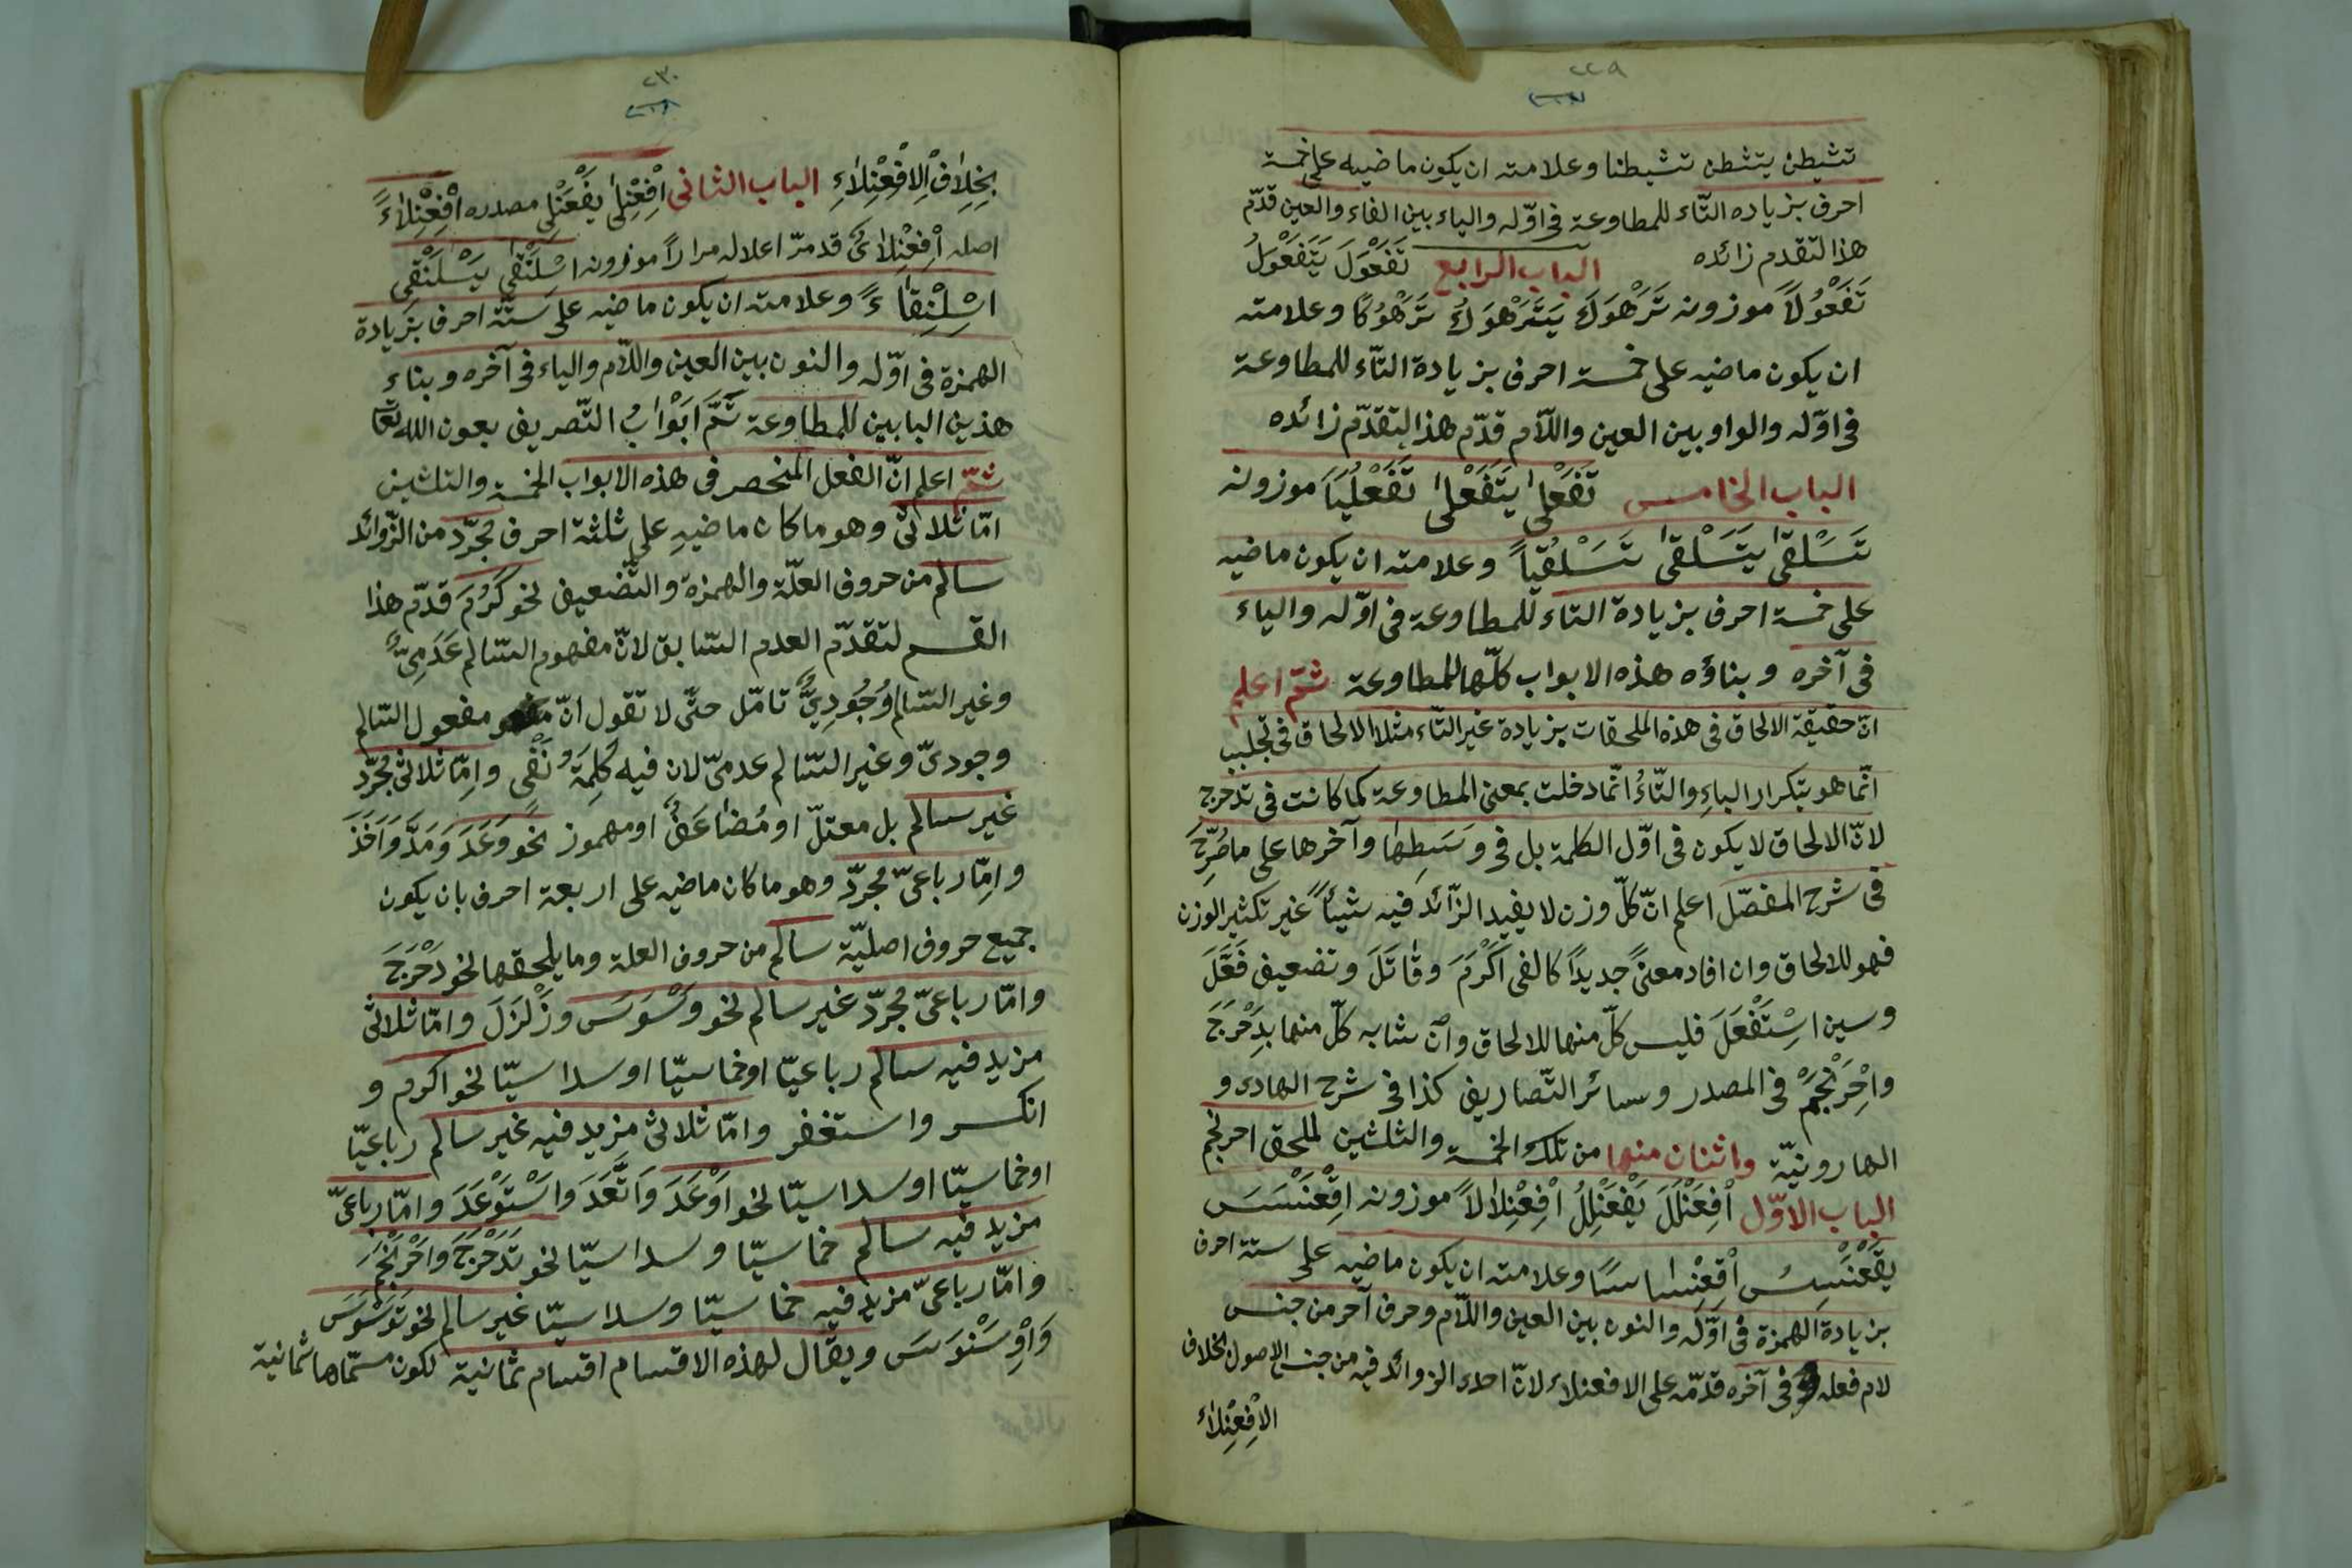 ٢٢٩
تشيطن يتشطن تشيطنا وعلامته ان يكون ماضيه على خمسة
احرف بزياده التّاء للمطاوعة فى اوّله والياء بين الفاء والعين قدّم
هذا لتقدم زائده الباب الرابع تَفَعْوَلَ يَتَفَعْوَلُ
تَفَعْوُلًا موزونه تَرَهْوَكَ يَتَرَهْوَكُ تَرَهْوُكًا وعلامته
ان يكون ماضيه على خمسة احرف بزيادة التّاء للمطاوعة
فى اوّله والواو بين العين واللّام قدّم هذا لتقدّم زائده
الباب الخامس تَفَعْلىٰ يَتَفَعْلىٰ تَفَعْلُيًا موزونه
تَسَلْقىٰ يَتَسَلْقىٰ تَسَلْقُيًا وعلامته ان يكون ماضيه
على خمسة احرف بزيادة التاء للمطاوعة فى اوّله والياء
فى آخره وبناؤه هذه الابواب كلّها للمطاوعة ثمّ اعلم
انّ حقيقة الالحاق فى هذه الملحقات بزيادة غير التّاء مثلا الالحاق فى تجلبب
انّما هو بتكرار الباءِ والتّاءُ انّما دخلت بمعنى المطاوعة كما كانت فى تدحرج
لانّ الالحاق لا يكون فى اوّل الكلمة بل فى وَسَطِهَا وآخرها على ما صُرِّحَ
فى شرح المفصّل اعلم انّ كلّ وزن لا يفيد الزّائد فيه شيئاً غير تكثير الوزن
فهو للالحاق وان افاد معنىً جديدًا كالفى اَكْرَمَ وقَاتَلَ وتضعيف فَعَّلَ
وسين اسْتَفْعَلَ فليس كلّ منها للالحاق وانْ شابه كلّ منها بِدَحْرَجَ
واحْرَنْجَمَ فى المصدر وسائر التّصاريف كذا فى شرح الهادى و
الهارونيّة واثنان منها من تلك الخمسة والثلثين لملحق احرنجم
الباب الاوّل اْفعَنْلَلَ يَفْعَنْلِلُ اْفعِنْلَالاً موزونه اقْعَنْسَسَ
يقْعَنْسِسُ اْقعِنْسَاسًا وعلامته ان يكون ماضيه على ستة احرف
بزيادة الهمزة فى اوّله والنون بين العين واللّام وحرف آخر من جنس
لام فعله فى آخره قدّمه على الافعنلاء لانّ احدى الزوائد فيه من جنس الاصول بخلاف
الاْفعِنْلَاءِ
٢٣٠
بخِلَافِ الاْفعِنْلَاءِ الباب الثانى اْفعَنْلىٰ يَفْعَنْلى مصدره اْفعِنْلَاءً
اصله اْفعِنْلَاىٌ قد مرّ اعلاله مرارًا موزونه اسْلَنْقىٰ يَسْلَنْقى
اسْلِنْقَاءً وعلامته ان يكون ماضيه على ستّة احرف بزيادة
الهمزة فى اوّله والنون بين العين واللّام والياء فى آخره وبناء
هذين البابين للمطاوعة تَمَّ اَبْوَابُ التّصريف بعون الله تعا
ثمّ اعلم انّ الفعل المنحصر فى هذه الابواب الخمسة والثلثين
امّا ثلاثىّ وهو ما كان ماضيهِ على ثلثة احرف مجرّد من الزّوائد
سالم من حروف العلّة والهمزة والتّضعيف نحو كَرُمَ قدّم هذا
القسم لتقدّم العدم السّابق لانّ مفهوم السّالم عَدَمِىٌّ
وغير السّالم وُجُودِىٌّ تامّل حتّى لا تقول انّ مفعول السّالم
وجودىّ وغير السّالم عدمىّ لان فيه كَلِمَةُ نَفْى وامّا ثلاثىّ مجرّد
غير سالم بل معتلّ او مُضَاعَفٌ او مهموز نحو وَعَدَ وَمَدَّ وَاَخَذَ
وامّا رباعىّ مجرّد وهو ما كان ماضيه على اربعة احرف بان يكون
جميع حروف اصليّة سالم من حروف العلة وما يلحقها نحو دَحْرَجَ
وامّا رباعىّ مجرّد غير سالم نحو وَسْوَسَ وزَلْزَلَ وامّا ثلاثىّ
مزيد فيه سالم رباعيّا او خماسيّا او سداسيّا نحو اكرم و
انكسر واستغفر وامّا ثلاثىّ مزيد فيه غير سالم رباعيّا
او خماسيّا او سداسيّا نحو اَوْعَدَ وَاتَّعَدَ واسْتَوْعَدَ وامّا رباعىّ
مزيد فيه سالم خماسيّا وسداسيّا نحو تَدَحْرَجَ وَاحْرَنْجَمَ
وامّا رباعىّ مزيد فيه خماسيّا وسداسيّا غير سالم نحو تَوَسْوَسَ
وَاوِسَنْوَسَ ويقال لهذه الاقسام اقسام ثمانية لكون مسمّاها ثمانية